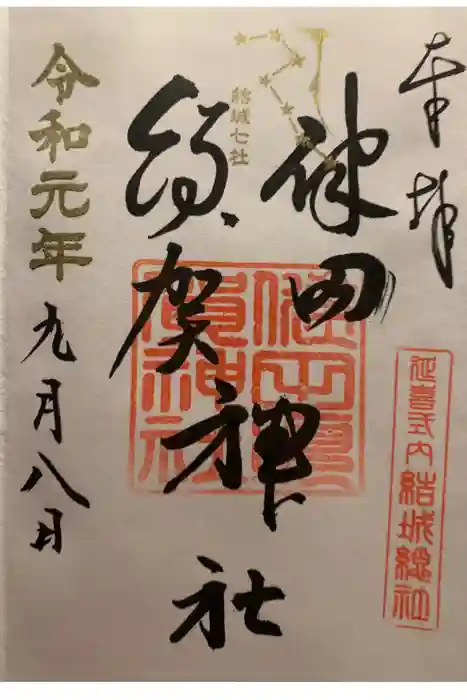 奉拝
延喜式内結城總社
健田
須賀神社
健田須
賀神社
結城七社
令和元年九月八日